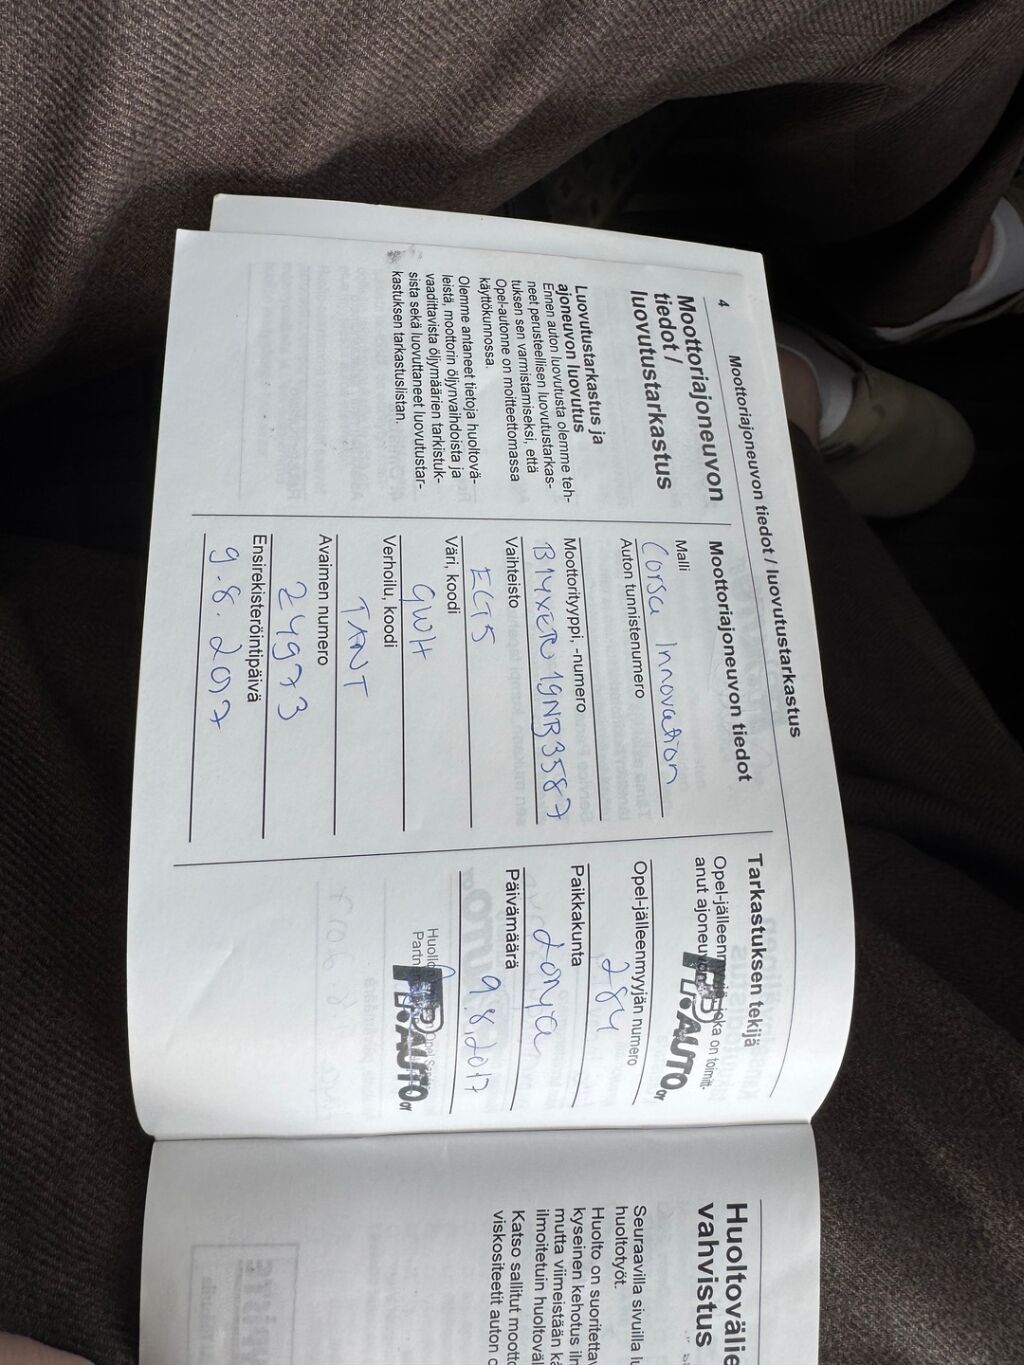 Moottoriajoneuvon tiedot / luovutustarkastus
4
Moottoriajoneuvon
tiedot /
luovutustarkastus
Luovutustarkastus ja
ajoneuvon luovutus
Ennen auton luovutusta olemme teh-
neet perusteellisen luovutustarkas-
tuksen sen varmistamiseksi, että
Opel-autonne on moitteettomassa
käyttökunnossa.
Olemme antaneet tietoja huoltovä-
leistä, moottorin öljynvaihdoista ja
vaadittavista öljymäärien tarkistuk-
sista sekä luovuttaneet luovutustar-
kastuksen tarkastuslistan.
Moottoriajoneuvon tiedot
Malli
Corsa Innovation
Auton tunnistenumero
Moottorityyppi, -numero
B14XER019NB3587
Vaihteisto
EGT5
Väri, koodi
GWH
Verhoilu, koodi
TANT
Avaimen numero
24973
Ensirekisteröintipäivä
9.8.2017
Tarkastuksen tekijä
Opel-jälleenmyyjä, joka on toimitt-
anut ajoneuvon
AUTO OY
Opel-jälleenmyyjän numero
284
Paikkakunta
Päivämäärä
9.8.2017
Huolto
Opel
Partn
AUTO OY
Huoltovälie
vahvistus
Seuraavilla sivuilla lu
huoltotyöt.
Huolto on suoritettav
kyseinen kehotus ilm
mutta viimeistään kä
ilmoitetuin huoltoväl
Katso sallitut mootto
viskositeetit auton o